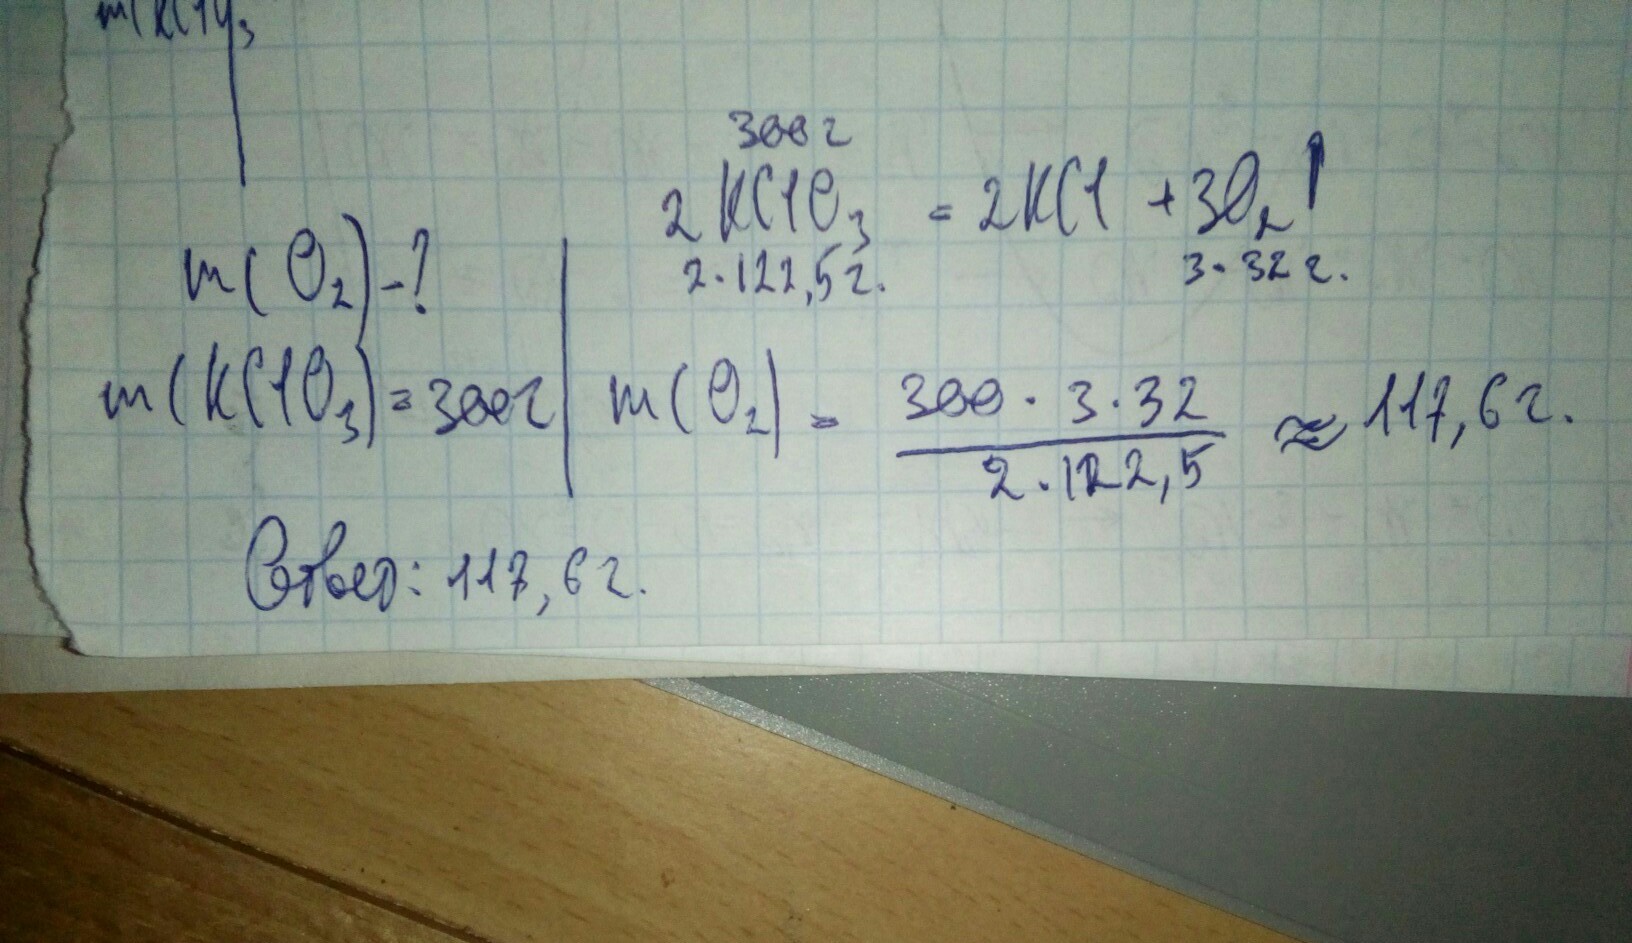 300г
2KClO₃ = 2KCl + 3O₂↑
2·122,5г. 3·32г.
m(O₂)-?
m(KClO₃)=300г
m(O₂) = 300·3·32 / 2·122,5 ≈ 117,6г.
Ответ: 117,6г.